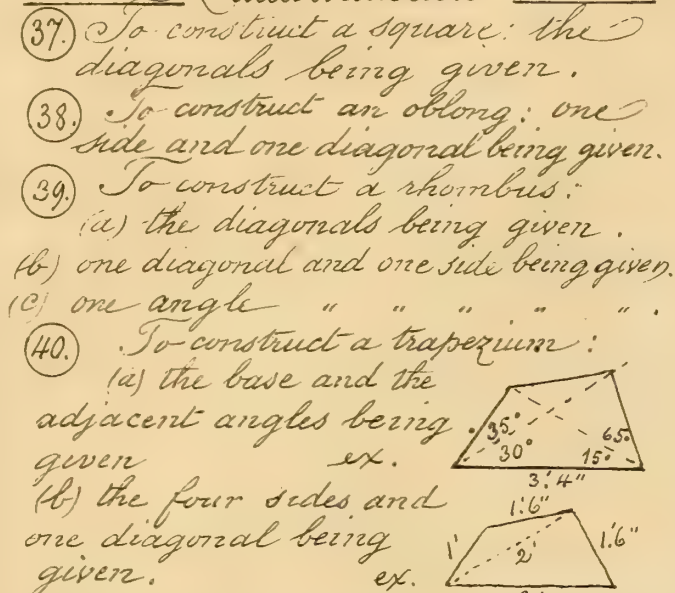 37. To construct a square: the
diagonals being given.
38. To construct an oblong: one
side and one diagonal being given.
39. To construct a rhombus:
(a) the diagonals being given.
(b) one diagonal and one side being given.
(c) one angle " " " " " .
40. To construct a trapezium:
(a) the base and the
adjacent angles being
given ex.
35° 30° 65° 15°
3'.4"
(b) the four sides and
one diagonal being
given. ex.
1'.6"
1' 2' 1'.6"